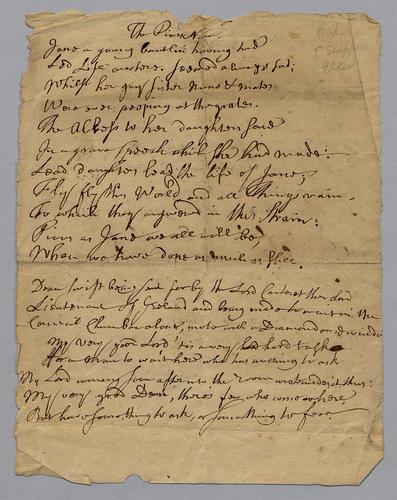 The Pious Nun.
Jane a young bantlin having had
Led Life austere, seemed always sad;
Whilst her gay sister Nuns & mates
Were ever peeping at the grates.
The Abbess to her daughters said
In a grave speech which she had made:
Lead daughters lead the life of Jane,
Fly, fly this World and all things vain.
To which they answered in this strain:
Pious as Jane we all will be,
When we have done as much as she.
Dean Swift being sent for by the Lord Carteret then Lord
Lieutenant of Ireland and being made to wait in the
Council Chamber alone, wrote with a Diamond on a window
My very good Lord 'tis a very hard task
For a man to wait here who has nothing to ask
My Lord coming soon after into the room wrote under thus:
My very good Dean, there's few who come here,
But have something to ask, or something to fear.